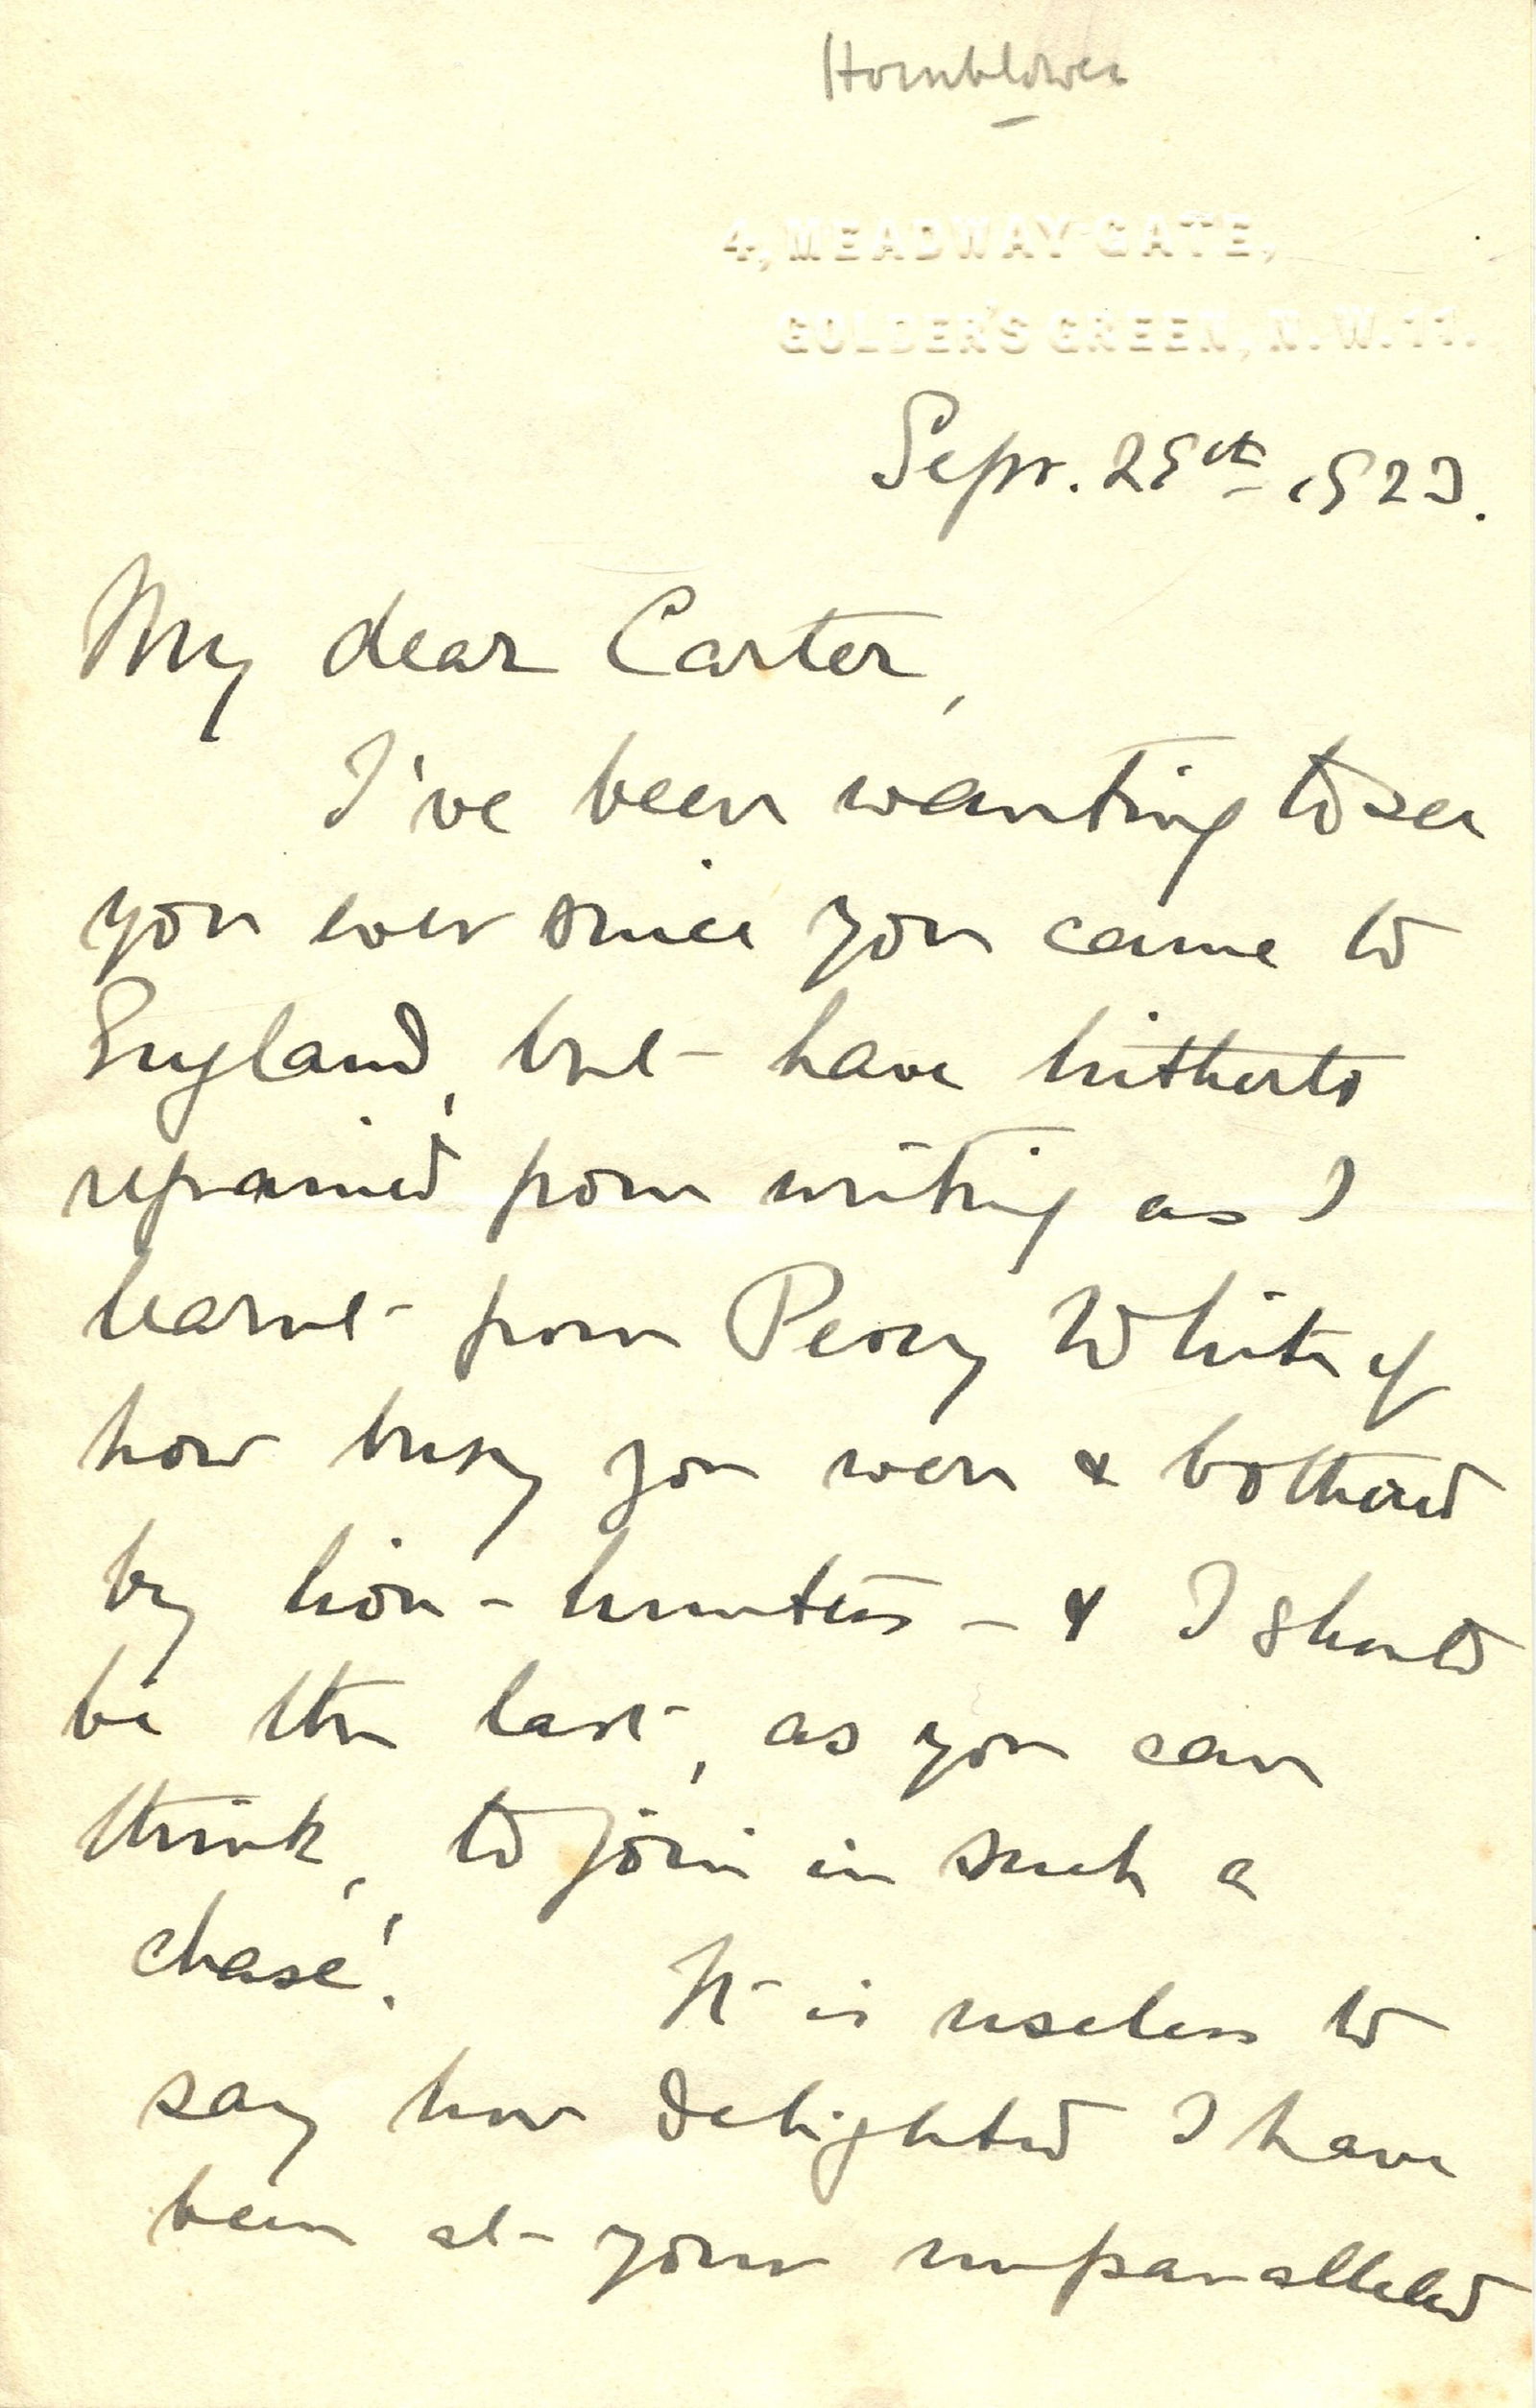 Hornblower
4, MEADWAY GATE,
GOLDER'S GREEN, N.W.11.
Sepr. 29th 1923.
My dear Carter,
I've been wanting to see
you ever since you came to
England, but have hitherto
refrained from writing as I
learnt from Percy White of
how busy you were & bothered
by lion-hunters - & I should
be the last, as you can
think, to join in such a
chase! It is useless to
say how delighted I have
been at your unparalleled